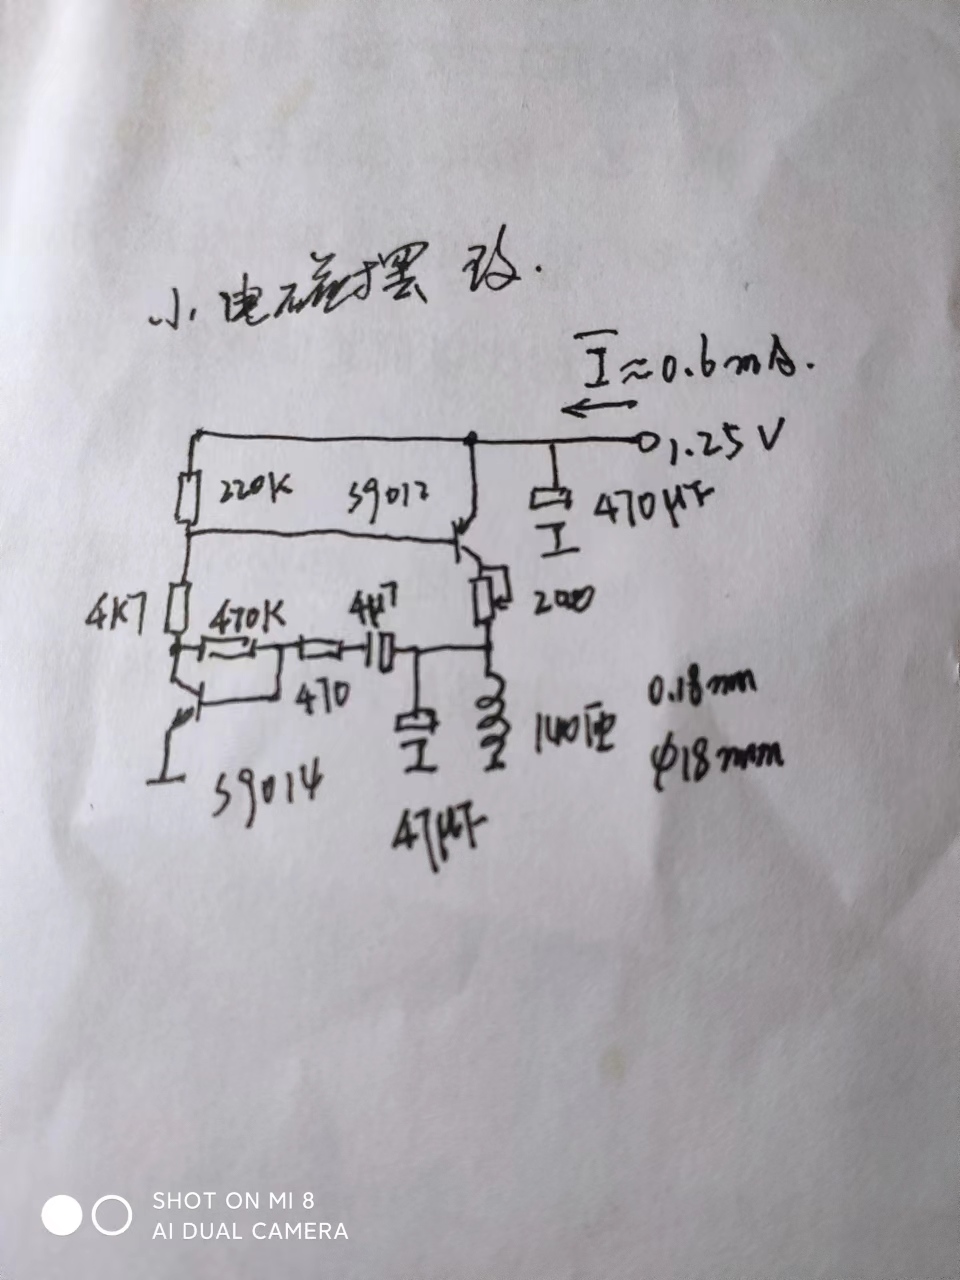 小电磁摆 改.
I≈0.6mA.
1.25V
220K
S9012
470μF
4K7
470K
4μ7
200
470
140匝
0.18mm
φ18mm
S9014
47μF
SHOT ON MI 8
AI DUAL CAMERA